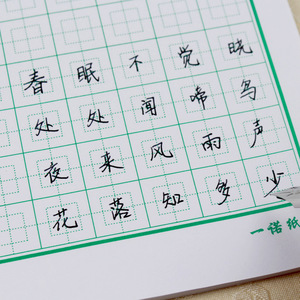 春眠不觉晓
处处闻啼鸟
夜来风雨声
花落知多少
一诺纸